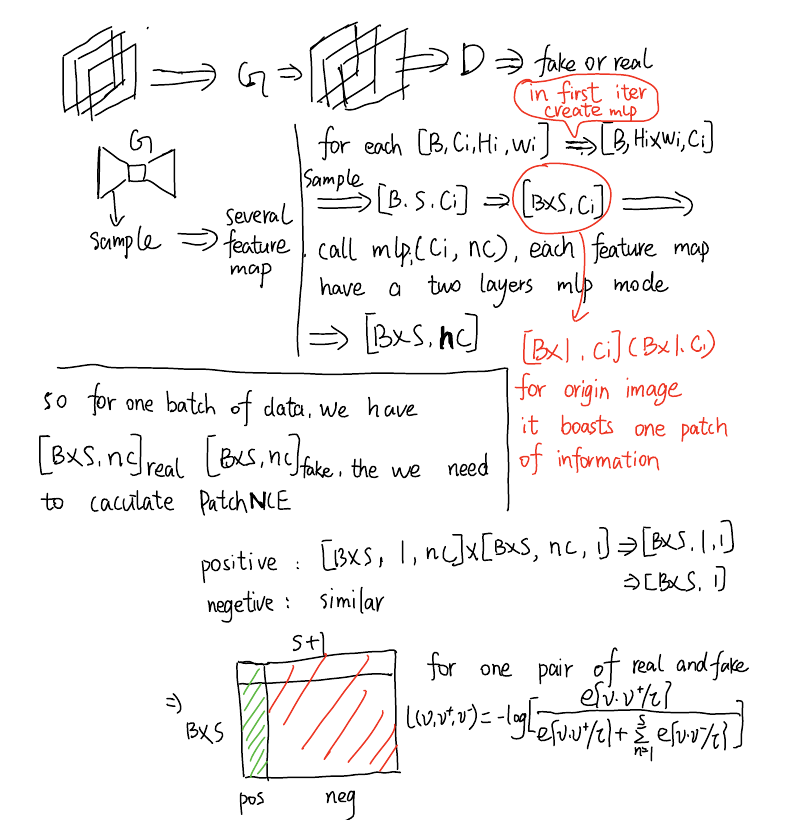 ⇒ G ⇒ ⇒ D ⇒ fake or real
in first iter
create mlp
G
sample ⇒ several
feature
map
for each [B, Ci, Hi, Wi] ⇒ [B, Hi×Wi, Ci]
Sample
⇒ [B. S. Ci] ⇒ [B×S, Ci] ⇒
call mlp,(Ci, nc), each feature map
have a two layers mlp mode
⇒ [B×S, nc]
[B×1, Ci] (B×1. Ci)
for origin image
it boasts one patch
of information
so for one batch of data, we have
[B×S, nc]real [B×S, nc]fake, the we need
to caculate PatchNCE
positive : [B×S, 1, nc]×[B×S, nc, 1] ⇒ [B×S, 1, 1]
⇒ [B×S, 1]
negetive : similar
S+1
⇒ B×S
pos neg
for one pair of real and fake
L(v,v⁺,v⁻) = -log[e{v·v⁺/τ} / e{v·v⁺/τ} + Σ_{n=1}^{S} e{v·v⁻/τ}]